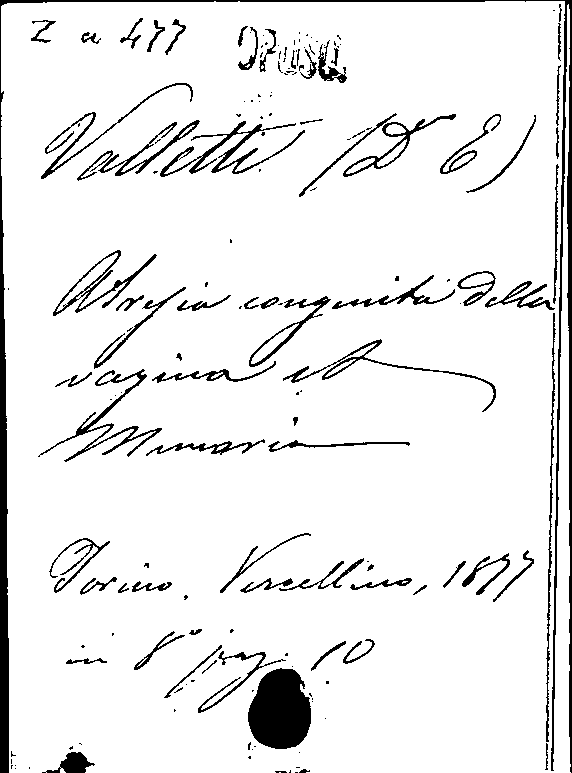 Z a 477 OPUSC.
Valletti (Dr E)
Atresia congenita della
vagina
Memoria
Torino. Vercellino, 1877
in 8° pag. 10